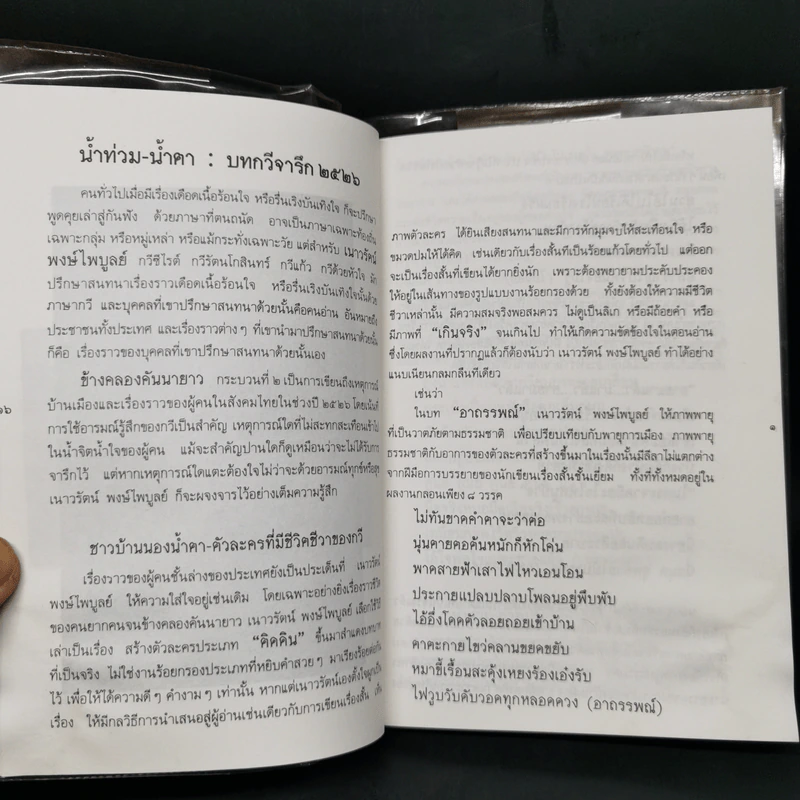 น้ำท่วม-น้ำตา : บทกวีจารึก ๒๕๒๖
คนทั่วไปเมื่อมีเรื่องเดือดเนื้อร้อนใจ หรือรื่นเริงบันเทิงใจ ก็จะปรึกษา
พูดคุยเล่าสู่กันฟัง ด้วยภาษาที่ตนถนัด อาจเป็นภาษาเฉพาะท้องถิ่น
เฉพาะกลุ่ม หรือหมู่เหล่า หรือแม้กระทั่งเฉพาะวัย แต่สำหรับ เนาวรัตน์
พงษ์ไพบูลย์ กวีซีไรต์ กวีรัตนโกสินทร์ กวีแก้ว กวีด้วยหัวใจ มัก
ปรึกษาสนทนาเรื่องราวเดือดเนื้อร้อนใจ หรือรื่นเริงบันเทิงใจนั้นด้วย
ภาษากวี และบุคคลที่เขาปรึกษาสนทนาด้วยนั้นคือคนอ่าน อันหมายถึง
ประชาชนทั้งประเทศ และเรื่องราวต่างๆ ที่เขานำมาปรึกษาสนทนาด้วยนั้น
ก็คือ เรื่องราวของบุคคลที่เขาปรึกษาสนทนาด้วยนั้นเอง
ข้างคลองคันนายาว กระบวนที่ ๒ เป็นการเขียนถึงเหตุการณ์
บ้านเมืองและเรื่องราวของผู้คนในสังคมไทยในช่วงปี ๒๕๒๖ โดยเน้นที่
การใช้อารมณ์รู้สึกของกวีเป็นสำคัญ เหตุการณ์ใดที่ไม่สะทกสะเทือนเข้าไป
ในน้ำจิตน้ำใจของผู้คน แม้จะสำคัญปานใดก็ดูเหมือนว่าจะไม่ได้รับการ
จารึกไว้ แต่หากเหตุการณ์ใดแตะต้องใจไม่ว่าจะด้วยอารมณ์ทุกข์หรือสุข
เนาวรัตน์ พงษ์ไพบูลย์ ก็จะผจงจารไว้อย่างเต็มความรู้สึก
ชาวบ้านนองน้ำตา-ตัวละครที่มีชีวิตชีวาของกวี
เรื่องราวของผู้คนชั้นล่างของประเทศยังเป็นประเด็นที่ เนาวรัตน์
พงษ์ไพบูลย์ ให้ความใส่ใจอยู่เช่นเดิม โดยเฉพาะอย่างยิ่งเรื่องราวชีวิต
ของคนยากคนจนข้างคลองคันนายาว เนาวรัตน์ พงษ์ไพบูลย์ เลือกใช้วิธี
เล่าเป็นเรื่อง สร้างตัวละครประเภท “ติดดิน” ขึ้นมาสำแดงบทบาท
ที่เป็นจริง ไม่ใช่งานร้อยกรองประเภทที่หยิบคำสวยๆ มาเรียงร้อยต่อกัน
ไว้ เพื่อให้ได้ความดีๆ คำงามๆ เท่านั้น หากแต่เนาวรัตน์เองตั้งใจผูกเป็น
เรื่อง ให้มีกลวิธีการนำเสนอสู่ผู้อ่านเช่นเดียวกับการเขียนเรื่องสั้น เห็น
๑๖
ภาพตัวละคร ได้ยินเสียงสนทนาและมีการหักมุมจบให้สะเทือนใจ หรือ
ขมวดปมให้ได้คิด เช่นเดียวกับเรื่องสั้นที่เป็นร้อยแก้วโดยทั่วไป แต่ออก
จะเป็นเรื่องสั้นที่เขียนได้ยากยิ่งนัก เพราะต้องพยายามประคับประคอง
ให้อยู่ในเส้นทางของรูปแบบงานร้อยกรองด้วย ทั้งยังต้องให้ความมีชีวิต
ชีวาเหล่านั้น มีความสมจริงพอสมควร ไม่ดูเป็นลิเก หรือมีถ้อยคำ หรือ
มีภาพที่ “เกินจริง” จนเกินไป ทำให้เกิดความขัดข้องใจในตอนอ่าน
ซึ่งโดยผลงานที่ปรากฏแล้วก็ต้องนับว่า เนาวรัตน์ พงษ์ไพบูลย์ ทำได้อย่าง
แนบเนียนกลมกลืนทีเดียว
เช่นว่า
ในบท “อาถรรพณ์” เนาวรัตน์ พงษ์ไพบูลย์ ให้ภาพพายุ
ที่เป็นวาตภัยตามธรรมชาติ เพื่อเปรียบเทียบกับพายุการเมือง ภาพพายุ
ธรรมชาติกับอาการของตัวละครที่สร้างขึ้นมาในเรื่องนั้นมีลีลาไม่แตกต่าง
จากฝีมือการบรรยายของนักเขียนเรื่องสั้นชั้นเยี่ยม ทั้งที่ทั้งหมดอยู่ใน
ผลงานกลอนเพียง ๘ วรรค
ไม่ทันขาดคำตาจะว่าต่อ
นุ่นตายคอค้นหนักก็หักโค่น
พาดสายฟ้าเสาไฟไหวเอนโอน
ประกายแปลบปลาบโพลนอยู่พึบพับ
ไอ้อึ่งโดดตัวลอยถอยเข้าบ้าน
ตาตะกายไขว่คลานขยดขยับ
หมาขี้เรื้อนสะดุ้งเหยงร้องเอ๋งรับ
ไฟวูบวับดับวอดทุกหลอดดวง (อาถรรพณ์)